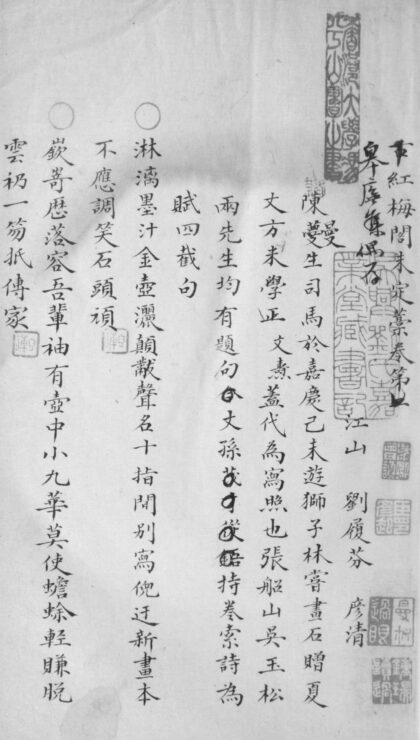 紅梅閣未定藁卷第上
皋庑偶存
江山　劉履芬　彥清
陳曼生司馬於嘉慶己未遊獅子林嘗畫石贈夏
丈方米學正文燾蓋代為寫照也張船山吳玉松
兩先生均有題句丈孫持卷索詩為
賦四截句
淋漓墨汁金壺灑顛黻聲名十指間別寫倪迂新畫本
不應調笑石頭頑
嶔嵜歷落容吾輩袖有壺中小九華莫使蟾蜍輕賺脫
雲礽一笏抵傳家